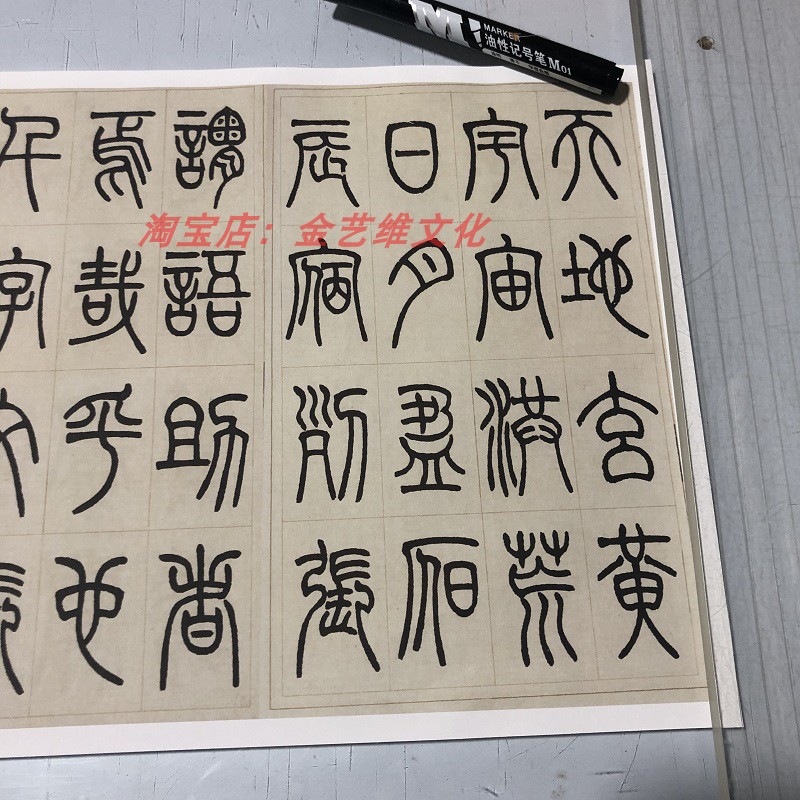 M!
MARKER
油性记号笔 M01
淘宝店：金艺维文化
天地玄黃
宇宙洪荒
日月盈昃
辰宿列張
謂語助者
焉哉乎也
千字文